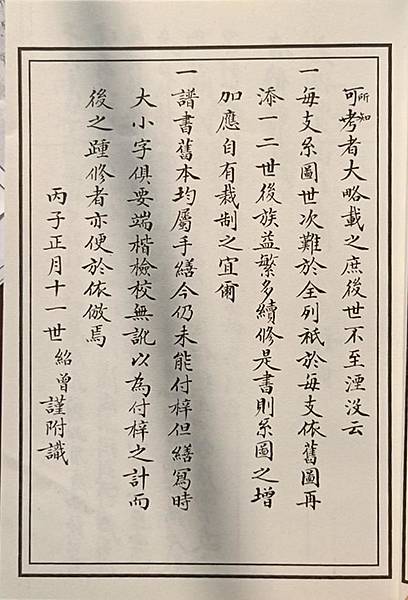 可所知考者大略載之庶後世不至湮沒云
一每支系圖世次難於全列祇於每支依舊圖再
添一二世後族益繁多續修是書則系圖之增
加應自有裁制之宜爾
一譜書舊本均屬手繕今仍未能付梓但繕寫時
大小字俱要端楷檢校無訛以為付梓之計而
後之踵修者亦便於依倣焉
丙子正月十一世紹曾謹附識